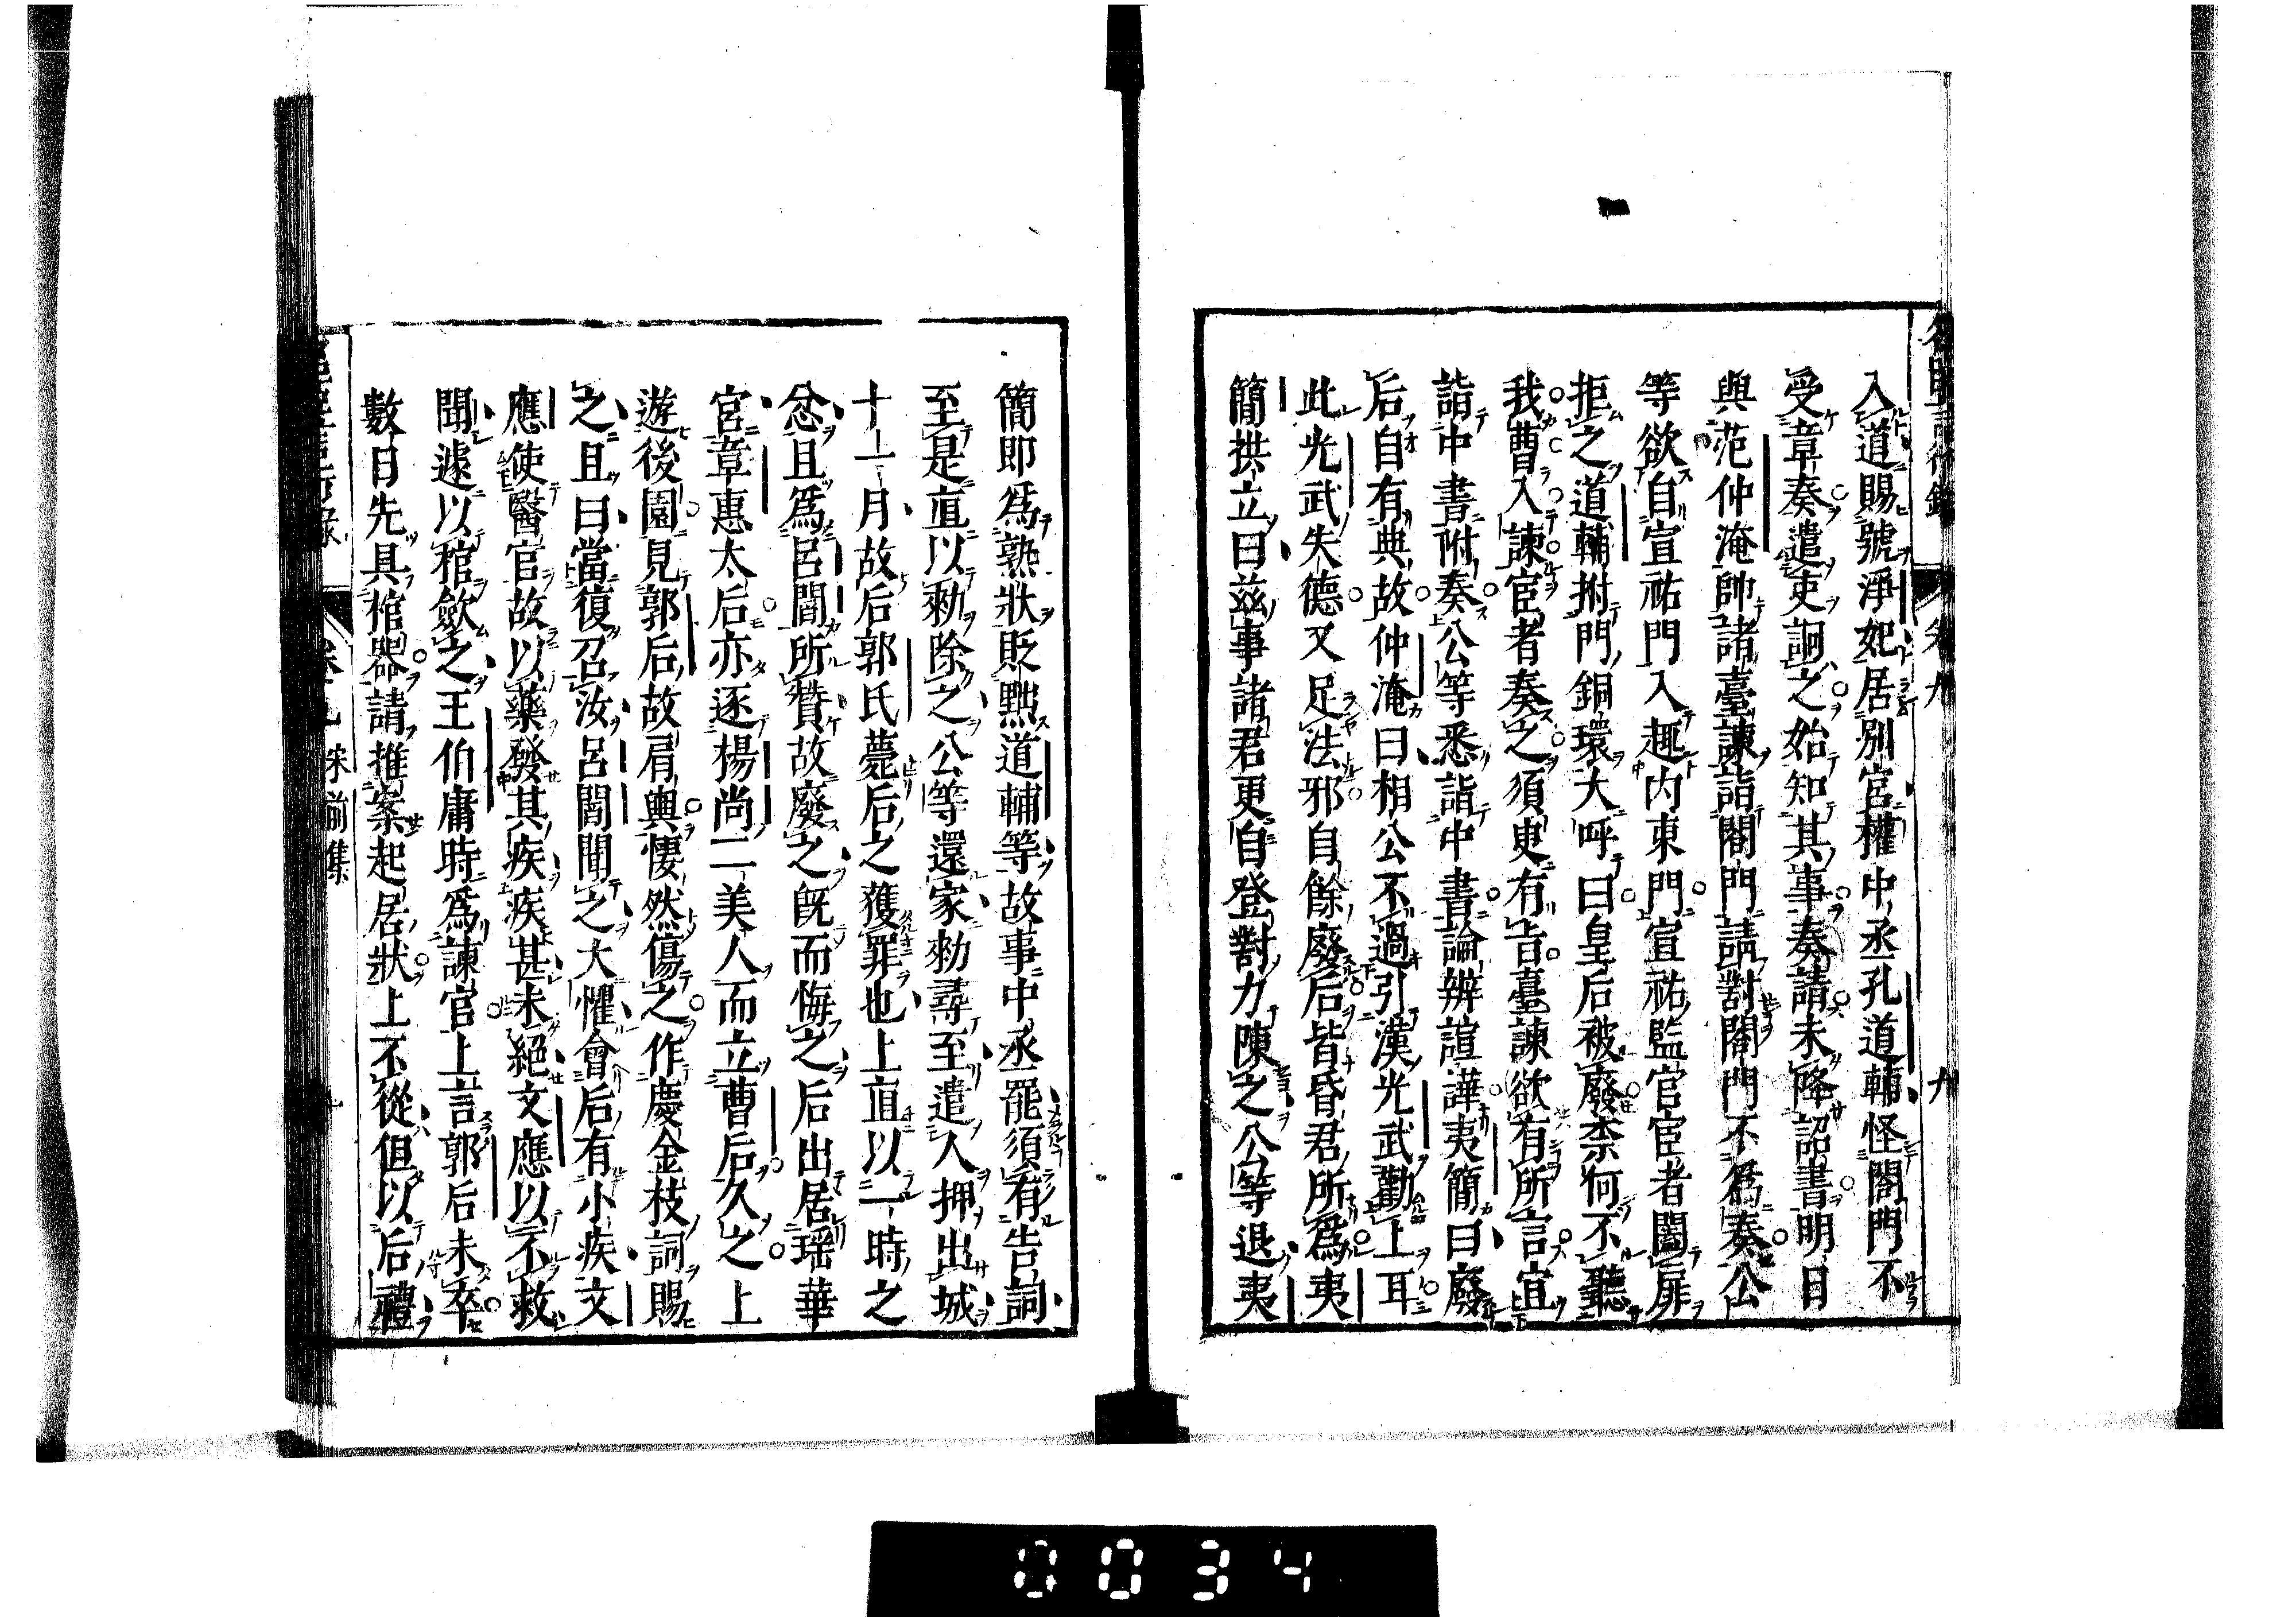 入道賜號淨妃居別宮權中丞孔道輔怪閤門不
受章奏遣吏詗之始知其事奏請未降詔書明日
與范仲淹帥諸臺諫詣閤門請對閤門不爲奏公
等欲自宣祐門入趣内東門宣祐監官宦者闔扉
拒之道輔拊門銅環大呼曰皇后被廢柰何不聽
我曹入諫宦者奏之須臾有旨臺諫欲有所言宜
詣中書附奏公等悉詣中書論辨諠譁夷簡曰廢
后自有典故仲淹曰相公不過引漢光武勸上耳
此光武失德又足法邪自餘廢后皆昏君所爲夷
簡拱立曰兹事諸君更自登對力陳之公等退夷
簡即爲熟狀貶黜道輔等故事中丞罷須有告詞
至是直以勑除之公等還家勑尋至遣人押出城
十一月故后郭氏薨后之獲罪也上直以一時之
忿且爲呂閻所贊故廢之既而悔之后出居瑶華
宮章惠太后亦逐楊尚二美人而立曹后久之上
遊後園見郭后故肩輿悽然傷之作慶金枝詞賜
之且曰當復召汝呂閻聞之大懼會后有小疾文
應使醫官故以藥發其疾疾甚未絕文應以不救
聞遽以棺歛之王伯庸時爲諫官上言郭后未卒
數日先具棺器請推案起居狀上不從但以后禮
卷九 宋前集
0034